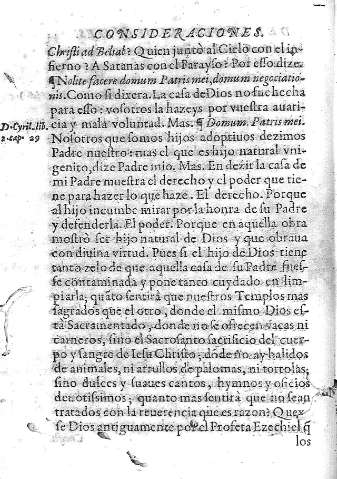 CONSIDERACIONES.
Christi ad Belial? Quien juntò al Cielo con el in-
fierno? A Satanas con el Parayso? Por esso dize.
¶ Nolite facere domum Patris mei, domum negociatio-
nis. Como si dixera. La casa de Dios no fue hecha
para esso: vosotros la hazeys por vuestra auari-
D. Cyril. lib. cia y mala voluntad. Mas. ¶ Domum Patris mei.
2. cap. 29 Nosotros que somos hijos adoptiuos dezimos
Padre nuestro: mas el que es hijo natural vni-
genito, dize Padre mio. Mas. En dezir la casa de
mi Padre muestra el derecho y el poder que tie-
ne para hazer lo que haze. El derecho. Porque
al hijo incumbe mirar por la honra de su Padre
y defenderla. El poder. Porque en aquella obra
mostrò ser hijo natural de Dios y que obraua
con diuina virtud. Pues si el hijo de Dios tiene
tanto zelo de que aquella casa de su Padre fues-
se contaminada y pone tanto cuydado en lim-
piarla; quãto sentirà que nuestros Templos mas
sagrados que el otro, donde el mismo Dios es-
tà Sacramentado, donde no se ofrecen vacas ni
carneros, sino el Sacrosanto sacrificio del cuer-
po y sangre de Iesu Christo, dõde no ay balidos
de animales, ni arrullos de palomas, ni tortolas;
sino dulces y suaues cantos, hymnos y oficios
deuotissimos; quanto mas sentirà que no sean
tratados con la reuerencia que es razon? Quexa
se Dios antiguamente por el Profeta Ezechiel q̃
los